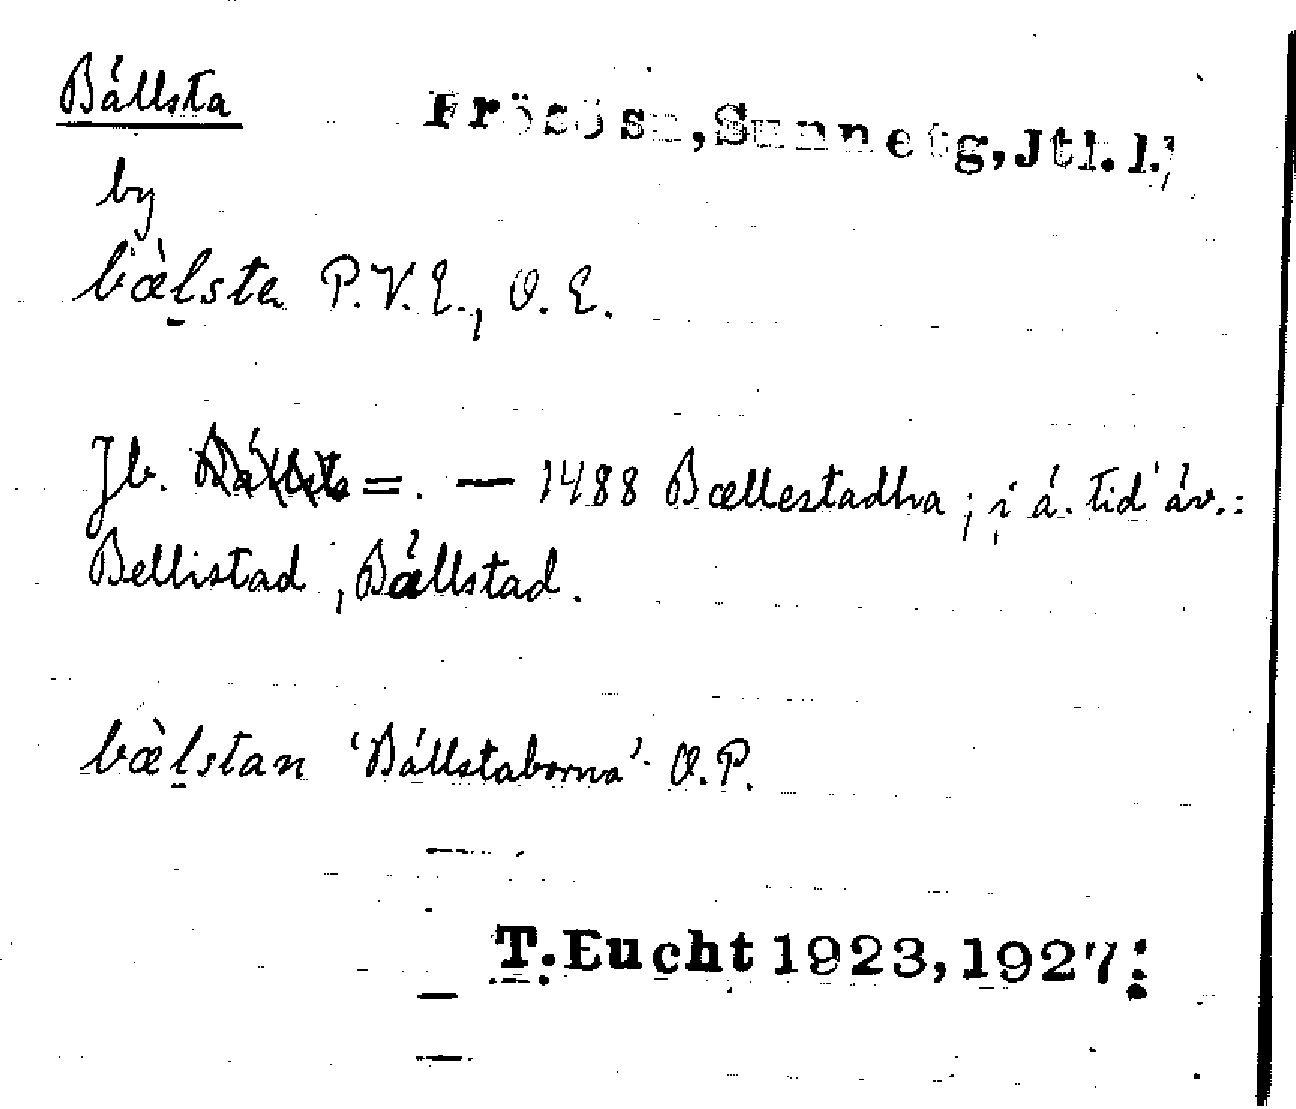 Bällsta Frösösn, Sunnetg, Jtl. l.,
by
bæ̀l̠sta P.V.E., O.E.
Jb. =. — 1488 Bællestadha; i ä. tid äv.:
Bellistad, Bällstad.
bæ̀l̠stan 'Bällstaborna' O.P.
T. Eucht 1923, 1927.